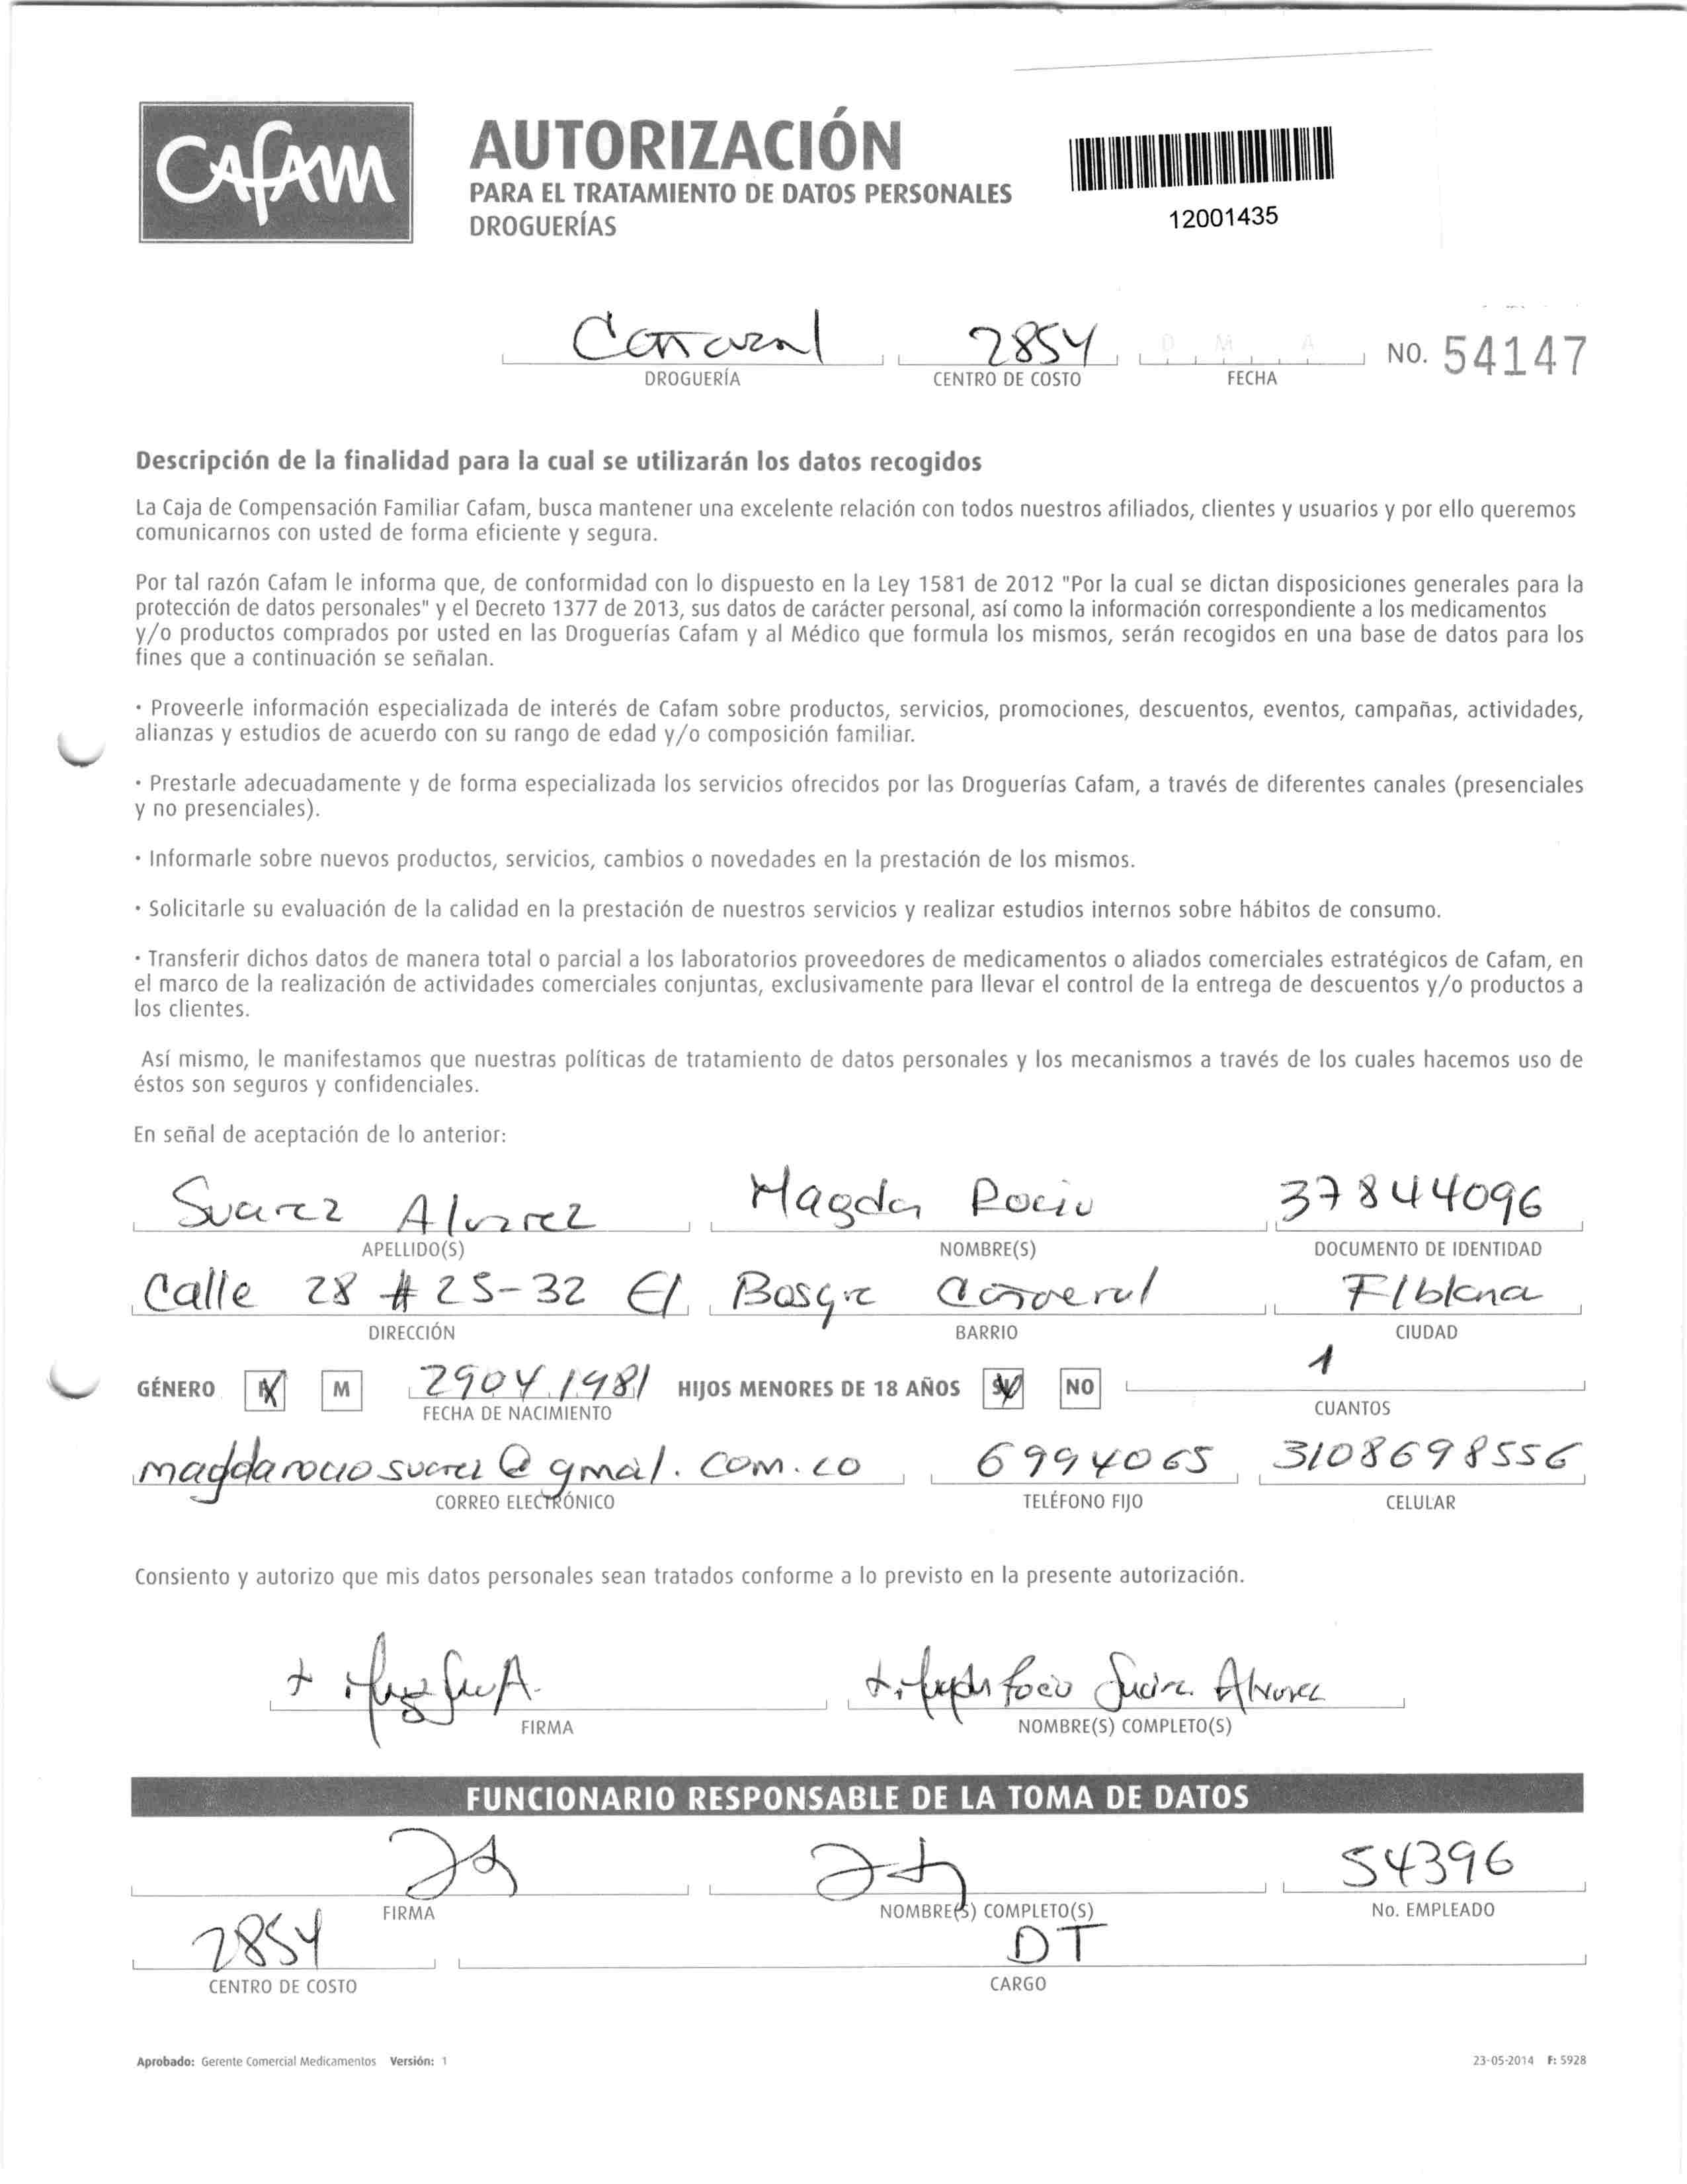 CAFAM
AUTORIZACIÓN
PARA EL TRATAMIENTO DE DATOS PERSONALES
DROGUERÍAS
12001435
2854
DROGUERÍA CENTRO DE COSTO D M A FECHA NO. 54147
Descripción de la finalidad para la cual se utilizarán los datos recogidos
La Caja de Compensación Familiar Cafam, busca mantener una excelente relación con todos nuestros afiliados, clientes y usuarios y por ello queremos
comunicarnos con usted de forma eficiente y segura.
Por tal razón Cafam le informa que, de conformidad con lo dispuesto en la Ley 1581 de 2012 "Por la cual se dictan disposiciones generales para la
protección de datos personales" y el Decreto 1377 de 2013, sus datos de carácter personal, así como la información correspondiente a los medicamentos
y/o productos comprados por usted en las Droguerías Cafam y al Médico que formula los mismos, serán recogidos en una base de datos para los
fines que a continuación se señalan.
· Proveerle información especializada de interés de Cafam sobre productos, servicios, promociones, descuentos, eventos, campañas, actividades,
alianzas y estudios de acuerdo con su rango de edad y/o composición familiar.
· Prestarle adecuadamente y de forma especializada los servicios ofrecidos por las Droguerías Cafam, a través de diferentes canales (presenciales
y no presenciales).
· Informarle sobre nuevos productos, servicios, cambios o novedades en la prestación de los mismos.
· Solicitarle su evaluación de la calidad en la prestación de nuestros servicios y realizar estudios internos sobre hábitos de consumo.
· Transferir dichos datos de manera total o parcial a los laboratorios proveedores de medicamentos o aliados comerciales estratégicos de Cafam, en
el marco de la realización de actividades comerciales conjuntas, exclusivamente para llevar el control de la entrega de descuentos y/o productos a
los clientes.
Así mismo, le manifestamos que nuestras políticas de tratamiento de datos personales y los mecanismos a través de los cuales hacemos uso de
éstos son seguros y confidenciales.
En señal de aceptación de lo anterior:
Suarez Alvarez Magda Rocio 37844096
APELLIDO(S) NOMBRE(S) DOCUMENTO DE IDENTIDAD
Calle 28 # 25-32 El Bosque Cañaveral F/blanca
DIRECCIÓN BARRIO CIUDAD
GÉNERO F M 29041981 HIJOS MENORES DE 18 AÑOS SI NO 1
FECHA DE NACIMIENTO CUANTOS
magdarociosuarez@gmail.com.co 6994065 3108698556
CORREO ELECTRÓNICO TELÉFONO FIJO CELULAR
Consiento y autorizo que mis datos personales sean tratados conforme a lo previsto en la presente autorización.
Magda Rocio Suarez Alvarez
FIRMA NOMBRE(S) COMPLETO(S)
FUNCIONARIO RESPONSABLE DE LA TOMA DE DATOS
54396
FIRMA NOMBRE(S) COMPLETO(S) No. EMPLEADO
2854 DT
CENTRO DE COSTO CARGO
Aprobado: Gerente Comercial Medicamentos Versión: 1 23-05-2014 F: 5928